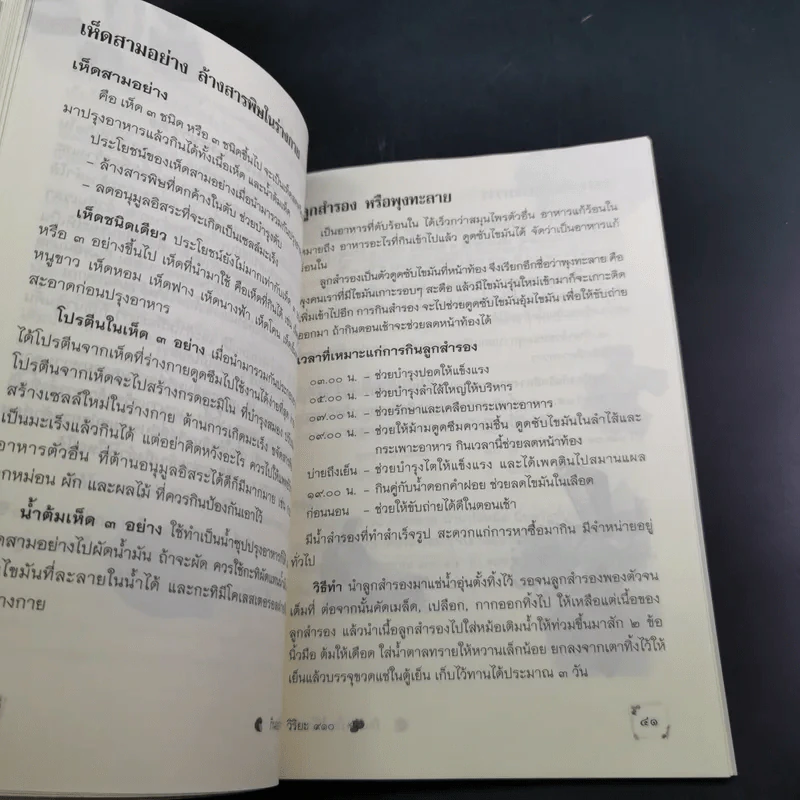 เห็ดสามอย่าง ล้างสารพิษในร่างกาย
เห็ดสามอย่าง
คือ เห็ด ๓ ชนิด หรือ ๓ ชนิดขึ้นไป จะเป็นเห็ด
มาปรุงอาหารแล้วกินได้ทั้งเนื้อเห็ด และน้ำต้มเห็ด
ประโยชน์ของเห็ดสามอย่างเมื่อนำมารวมกัน
– ล้างสารพิษที่ตกค้างในตับ ช่วยบำรุงตับ
– ลดอนุมูลอิสระที่จะเกิดเป็นเซลล์มะเร็ง
เห็ดชนิดเดียว ประโยชน์ยังไม่มากเท่ากับเห็ด
หรือ ๓ อย่างขึ้นไป เห็ดที่นำมาใช้ คือเห็ดที่กินได้ เช่น
หนูขาว เห็ดหอม เห็ดฟาง เห็ดนางฟ้า เห็ดโคน
สะอาดก่อนปรุงอาหาร
โปรตีนในเห็ด ๓ อย่าง เมื่อนำมารวมกัน
ได้โปรตีนจากเห็ดที่ร่างกายดูดซึมไปใช้งานได้ง่ายที่สุด
โปรตีนจากเห็ดจะไปสร้างกรดอะมิโน ที่บำรุงสมอง
สร้างเซลล์ใหม่ในร่างกาย ด้านการเกิดมะเร็ง
เป็นมะเร็งแล้วกินได้ แต่อย่าคิดหวังอะไร ควรไป
อาหารตัวอื่น ที่ต้านอนุมูลอิสระได้ดีก็มีมากมาย เช่น
กหม่อน ผัก และผลไม้ ที่ควรกินป้องกันเอาไว้
น้ำต้มเห็ด ๓ อย่าง ใช้ทำเป็นน้ำซุปปรุงอาหาร
ดสามอย่างไปผัดน้ำมัน ถ้าจะผัด ควรใช้กะทิผัดแทน
ไขมันที่ละลายในน้ำได้ และกะทิมีโคเลสเตอรอล
่างกาย
ลูกสำรอง หรือพุงทะลาย
เป็นอาหารที่ดับร้อนใน ได้เร็วกว่าสมุนไพรตัวอื่น อาหารแก้ร้อนใน
หมายถึง อาหารอะไรที่กินเข้าไปแล้ว ดูดซับไขมันได้ จัดว่าเป็นอาหารแก้
ร้อนใน
ลูกสำรองเป็นตัวดูดไขมันที่หน้าท้อง จึงเรียกอีกชื่อว่าพุงทะลาย คือ
พุงคนเราที่มีไขมันเกาะรอบๆ สะดือ แล้วมีไขมันรุ่นใหม่เข้ามาก็จะเกาะติด
เพิ่มเข้าไปอีก การกินสำรอง จะไปช่วยดูดซับไขมันอุ้มไขมัน เพื่อให้ขับถ่าย
ออกมา ถ้ากินตอนเช้าจะช่วยลดหน้าท้องได้
เวลาที่เหมาะแก่การกินลูกสำรอง
๐๓.๐๐ น. – ช่วยบำรุงปอดให้แข็งแรง
๐๕.๐๐ น. – ช่วยบำรุงลำไส้ใหญ่ให้บริหาร
๐๗.๐๐ น. – ช่วยรักษาและเคลือบกระเพาะอาหาร
๐๙.๐๐ น. – ช่วยให้ม้ามดูดซึมความชื้น ดูดซับไขมันในลำไส้และ
กระเพาะอาหาร กินเวลานี้ช่วยลดหน้าท้อง
บ่ายถึงเย็น – ช่วยบำรุงไตให้แข็งแรง และได้เพคตินไปสมานแผล
๑๙.๐๐ น. – กินคู่กับน้ำดอกคำฝอย ช่วยลดไขมันในเลือด
ก่อนนอน – ช่วยให้ขับถ่ายได้ดีในตอนเช้า
มีน้ำสำรองที่ทำสำเร็จรูป สะดวกแก่การหาซื้อมากิน มีจำหน่ายอยู่
ทั่วไป
วิธีทำ นำลูกสำรองมาแช่น้ำอุ่นตั้งทิ้งไว้ รอจนลูกสำรองพองตัวจน
เต็มที่ ต่อจากนั้นคัดเมล็ด, เปลือก, กากออกทิ้งไป ให้เหลือแต่เนื้อของ
ลูกสำรอง แล้วนำเนื้อลูกสำรองไปใส่หม้อเติมน้ำให้ท่วมขึ้นมาสัก ๒ ข้อ
นิ้วมือ ต้มให้เดือด ใส่น้ำตาลทรายให้หวานเล็กน้อย ยกลงจากเตาทิ้งไว้ให้
เย็นแล้วบรรจุขวดแช่ในตู้เย็น เก็บไว้ทานได้ประมาณ ๓ วัน
วิริยะ ๙๑๐
๔๑